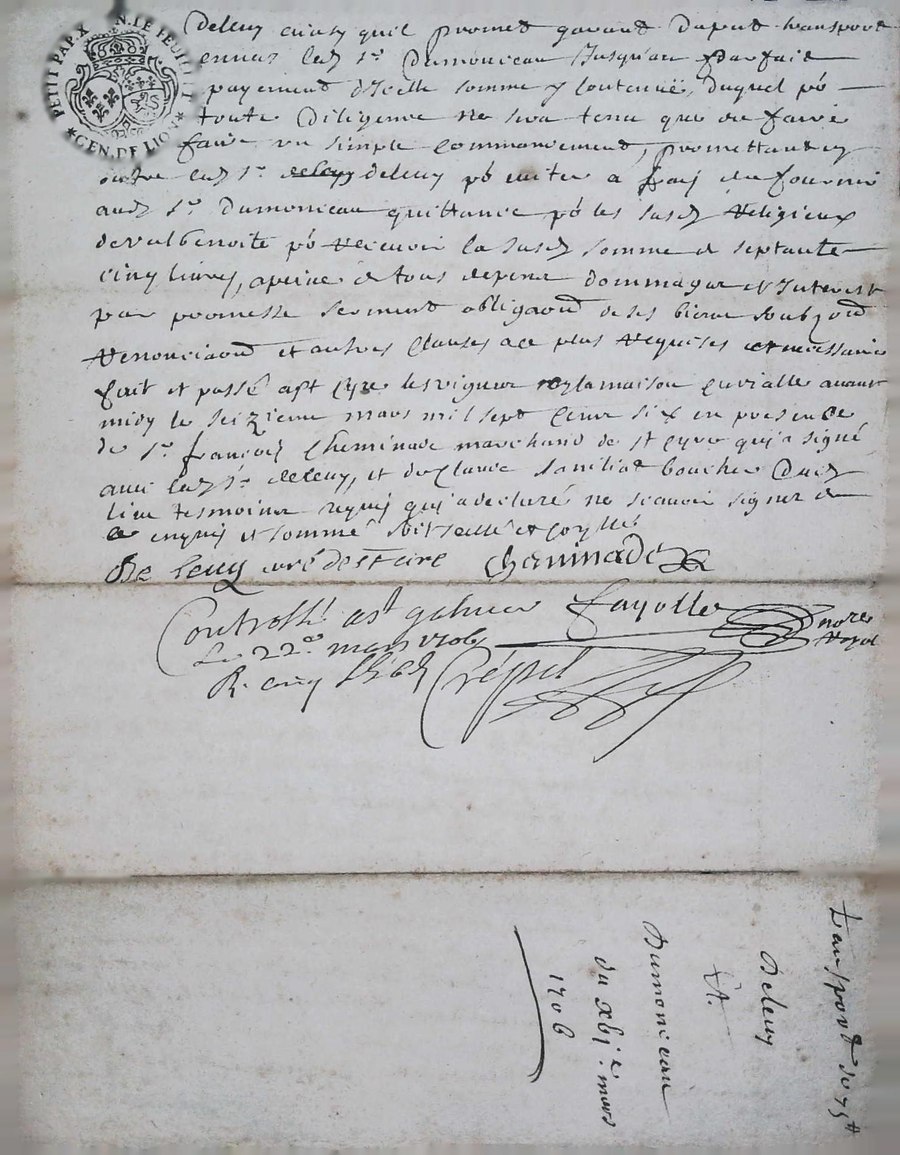 PETIT PAP. X D.N. LE FEUILLET
* GEN. DE LION *
deleuy ainsy quil promet garand dupnt transport
envers led sr Dumonceau Jusqu'au parfaict
payement d'Icelle somme y contenüe, duquel po
toute Diligence ne sera tenu que de faire
faire un simple commandement, promettant en
outre led sr deleuy deleuy po éviter a frais de fournir
aud sr Dumonceau quittance po les susd Religieux
de valbenoite po recevoir la susd somme de septante
cinq livres, apeine de tous depens dommages et Interest
par promesse serment obligaon de ses biens soubzon
Renonciaon et autres clauses a ce plus requises et nécessaires
fait et passé a st Cyre les vignes la maison curialle avant
midy le seizieme mars mil sept cents six en presence
de sr françois Cheminade marchand de st Cyre qui a signé
avec led sr deleuy, et de Claude boucher dud
lieu tesmoins requis qui a declaré ne scavoir signer de
ce enquis et sommé
De Leuy curé de st Cire Cheminade
Controllé a st galmier Fayolle nore Royal
Le 22e mars 1706
R. cinq Crépet
transport de 75 ⁋
Deleuy
A.
Dumonceau
du xbj.e mars
1706